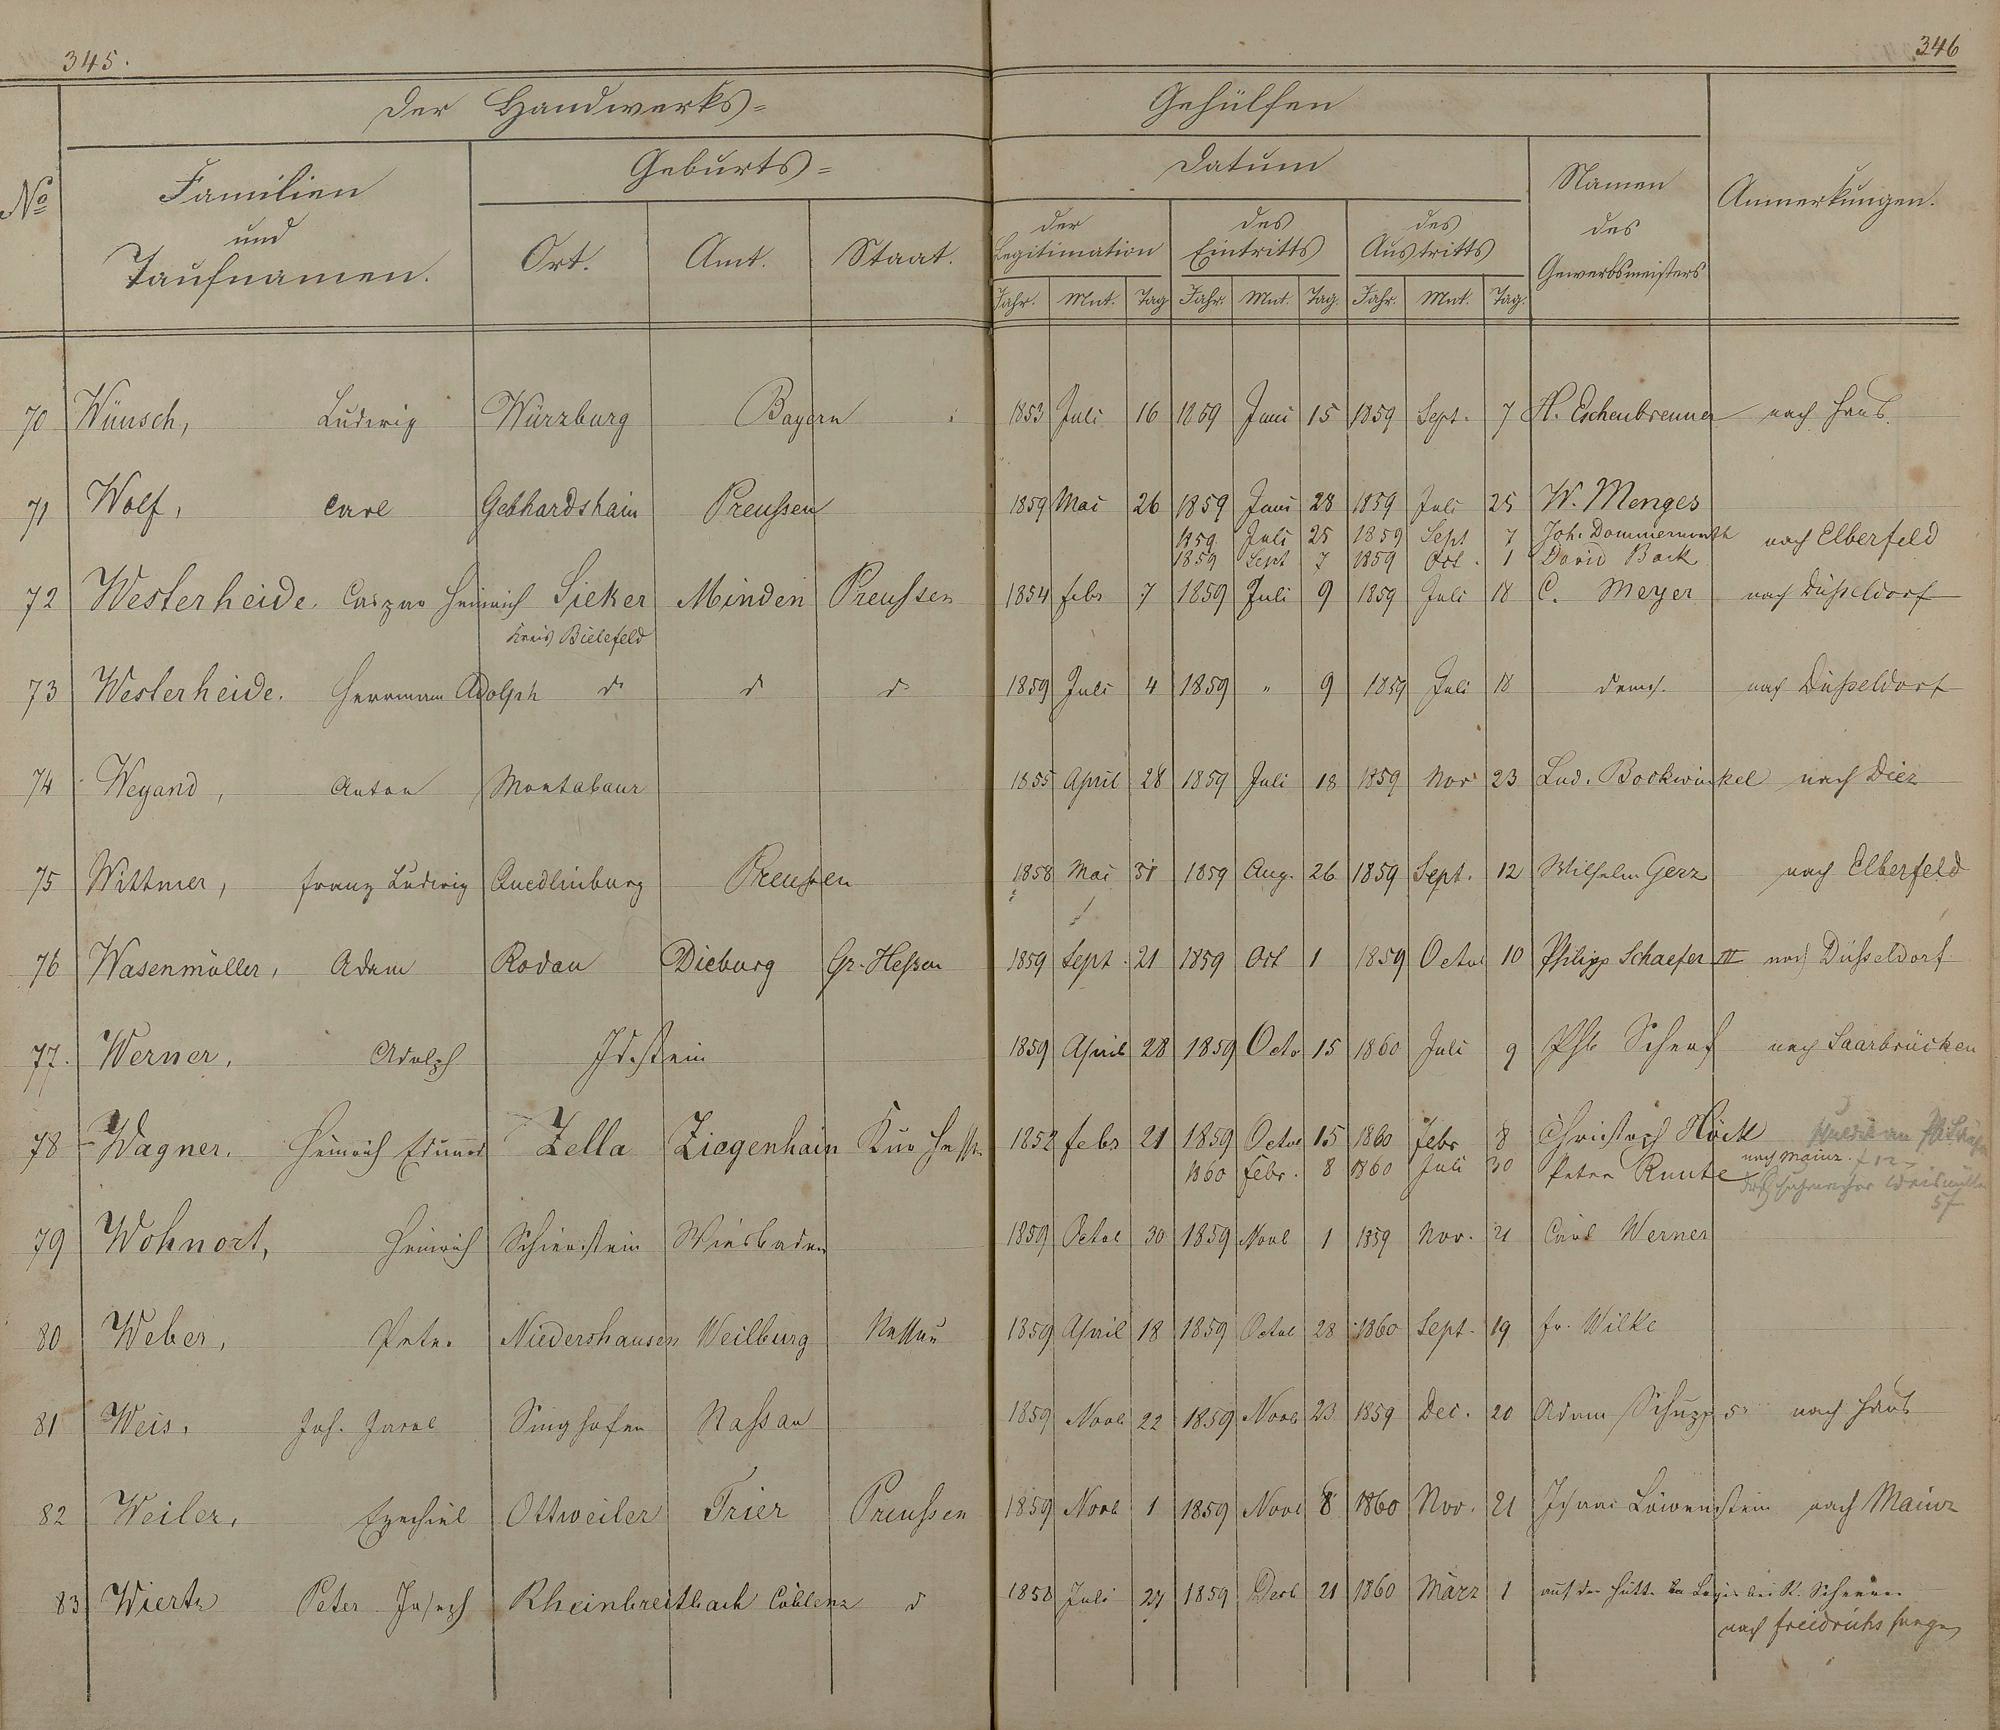 345.
346
Der Handwerks=
Gehülfen
No
Familien
und
Taufnamen.
Geburts=
Ort.
Amt.
Staat.
Datum
der
Legitimation
des
Eintritts
des
Austritts
Jahr. Mnt. Tag Jahr. Mnt. Tag. Jahr. Mnt. Tag.
Namen
des
Gewerbsmeisters
Anmerkungen.
70 Wünsch, Ludwig Würzburg Bayern 1853 Juli 16 1859 Juni 15 1859 Sept. 7 H. Eschenbrenner nach Haus.
71 Wolf, Carl Gebhardshain Preussen 1859 Mai 26 1859 Juni 28 1859 Juli 25 W. Menges
1859 Juli 25 1859 Sept 7 Joh. Dommermuth nach Elberfeld
1859 Sept 7 1859 Oct. 1 David Bock
72 Westerheide. Caspar Heinrich Sieker Minden Preussen 1854 Febr 7 1859 Juli 9 1859 Juli 18 C. Meyer nach Düsseldorf
Kreis Bielefeld
73 Westerheide. Herrmann Adolph do do do 1859 Juli 4 1859 " 9 1859 Juli 18 dems. nach Düsseldorf
74 Weyand, Anton Montabaur 1855 April 28 1859 Juli 18 1859 Nov 23 Lud. Bockwinkel nach Diez
75 Wittmer, Franz Ludwig Quedlinburg Preussen 1858 Mai 31 1859 Aug. 26 1859 Sept. 12 Wilhelm Gerz nach Elberfeld
76 Wasenmüller, Adam Rodau Dieburg Gr. Hessen 1859 Sept. 21 1859 Oct 1 1859 Octol 10 Philipp Schaefer III nach Düsseldorf.
77. Werner, Adolph Idstein 1859 April 28 1859 Octo 15 1860 Juli 9 Phl Scherf nach Saarbrücken
78 Wagner. Heinrich Zella Ziegenhain Kur Hessen 1852 Febr 21 1859 Octol 15 1860 Febr 8 Christoph Höck
1860 Febr. 8 1860 Juli 30 Peter Runte nach Mainz.
79 Wohnort, Heinrich Schierstein Wiesbaden 1859 Octol 30 1859 Novl 1 1859 Nov. 21 Carl Werner
80 Weber, Peter Niedershausen Weilburg Nassau 1859 April 18 1859 Octol 28 1860 Sept. 19 Fr. Wilke
81 Weis, Joh. Jacob Singhofen Nassau 1859 Novb 22 1859 Novb 23 1859 Dec. 20 Adam Schupp nach Haus
82 Weiler, Ezechiel Ottweiler Trier Preussen 1859 Novb 1 1859 Novl 8 1860 Nov. 21 Isaac Löwenstein nach Mainz
83 Wiertz Peter Joseph Rheinbreitbach Coblenz do 1858 Juli 27 1859 Decb 21 1860 März 1 auf der Hütte in Logis bei
nach Freidrichs